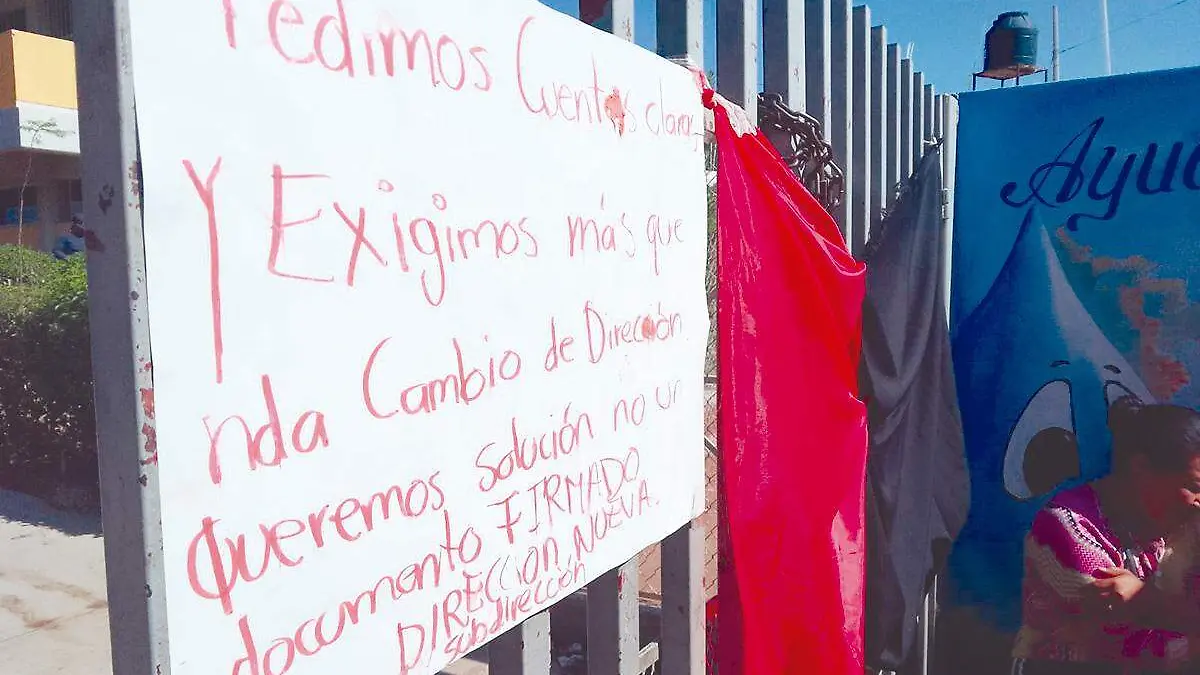 Pedimos Cuentas claras
Y Exigimos más que
nda Cambio de Dirección.
Queremos solución no un
documento FIRMADO
DIRECCIÓN NUEVA.
subdirección
Ayud